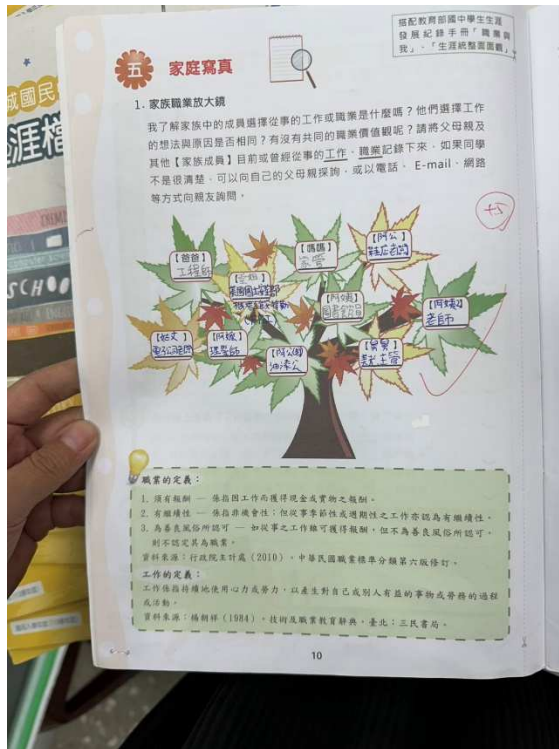 搭配教育部國中學生生涯
發展紀錄手冊「職業與
我」、「生涯統整面面觀」
五 家庭寫真
1. 家族職業放大鏡
我了解家族中的成員選擇從事的工作或職業是什麼嗎？他們選擇工作
的想法與原因是否相同？有沒有共同的職業價值觀呢？請將父母親及
其他【家族成員】目前或曾經從事的工作、職業記錄下來，如果同學
不是很清楚，可以向自己的父母親探詢，或以電話、E-mail、網路
等方式向親友詢問。
【爸爸】
工程師
【媽媽】
家管
【阿公】
鞋店老闆
【阿姨】
圖書館員
【阿姨】
老師
【姑丈】
【阿嬤】
【阿公】
油漆公
【舅舅】
職業的定義：
1. 須有報酬 — 係指因工作而獲得現金或實物之報酬。
2. 有繼續性 — 係指非機會性；但從事季節性或週期性之工作亦認為有繼續性。
3. 為善良風俗所認可 — 如從事之工作雖可獲得報酬，但不為善良風俗所認可，
則不認定其為職業。
資料來源：行政院主計處（2010），中華民國職業標準分類第六版修訂。
工作的定義：
工作係指持續地使用心力或勞力，以產生對自己或別人有益的事物或勞務的過程
或活動。
資料來源：楊朝祥（1984），技術及職業教育辭典，臺北：三民書局。
10
城國民
涯檔
SCHOO